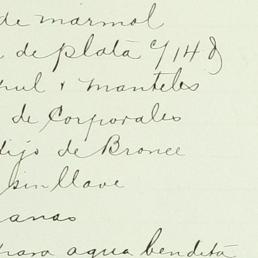 de marmol
de plata c/ 14 8
y manteles
de Corporales
de Bronce
sin llave
anas
para agua bendita